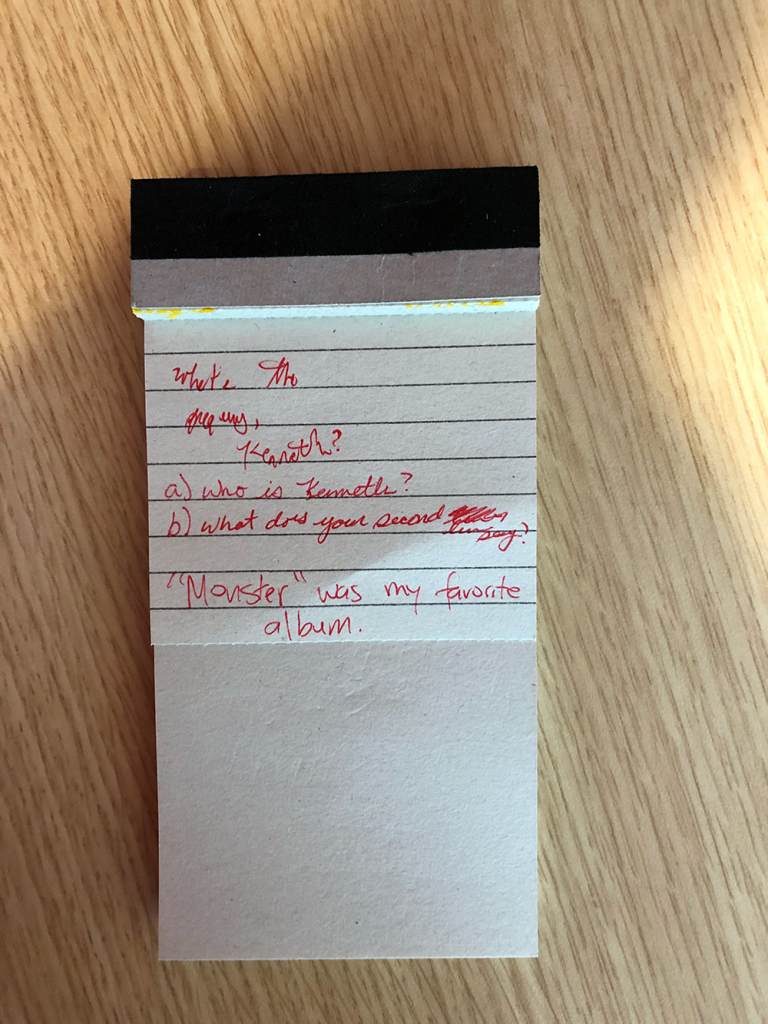 What's the
frequency,
Kenneth?
a) who is Kenneth?
b) what does your second line
say?
"Monster" was my favorite
album.